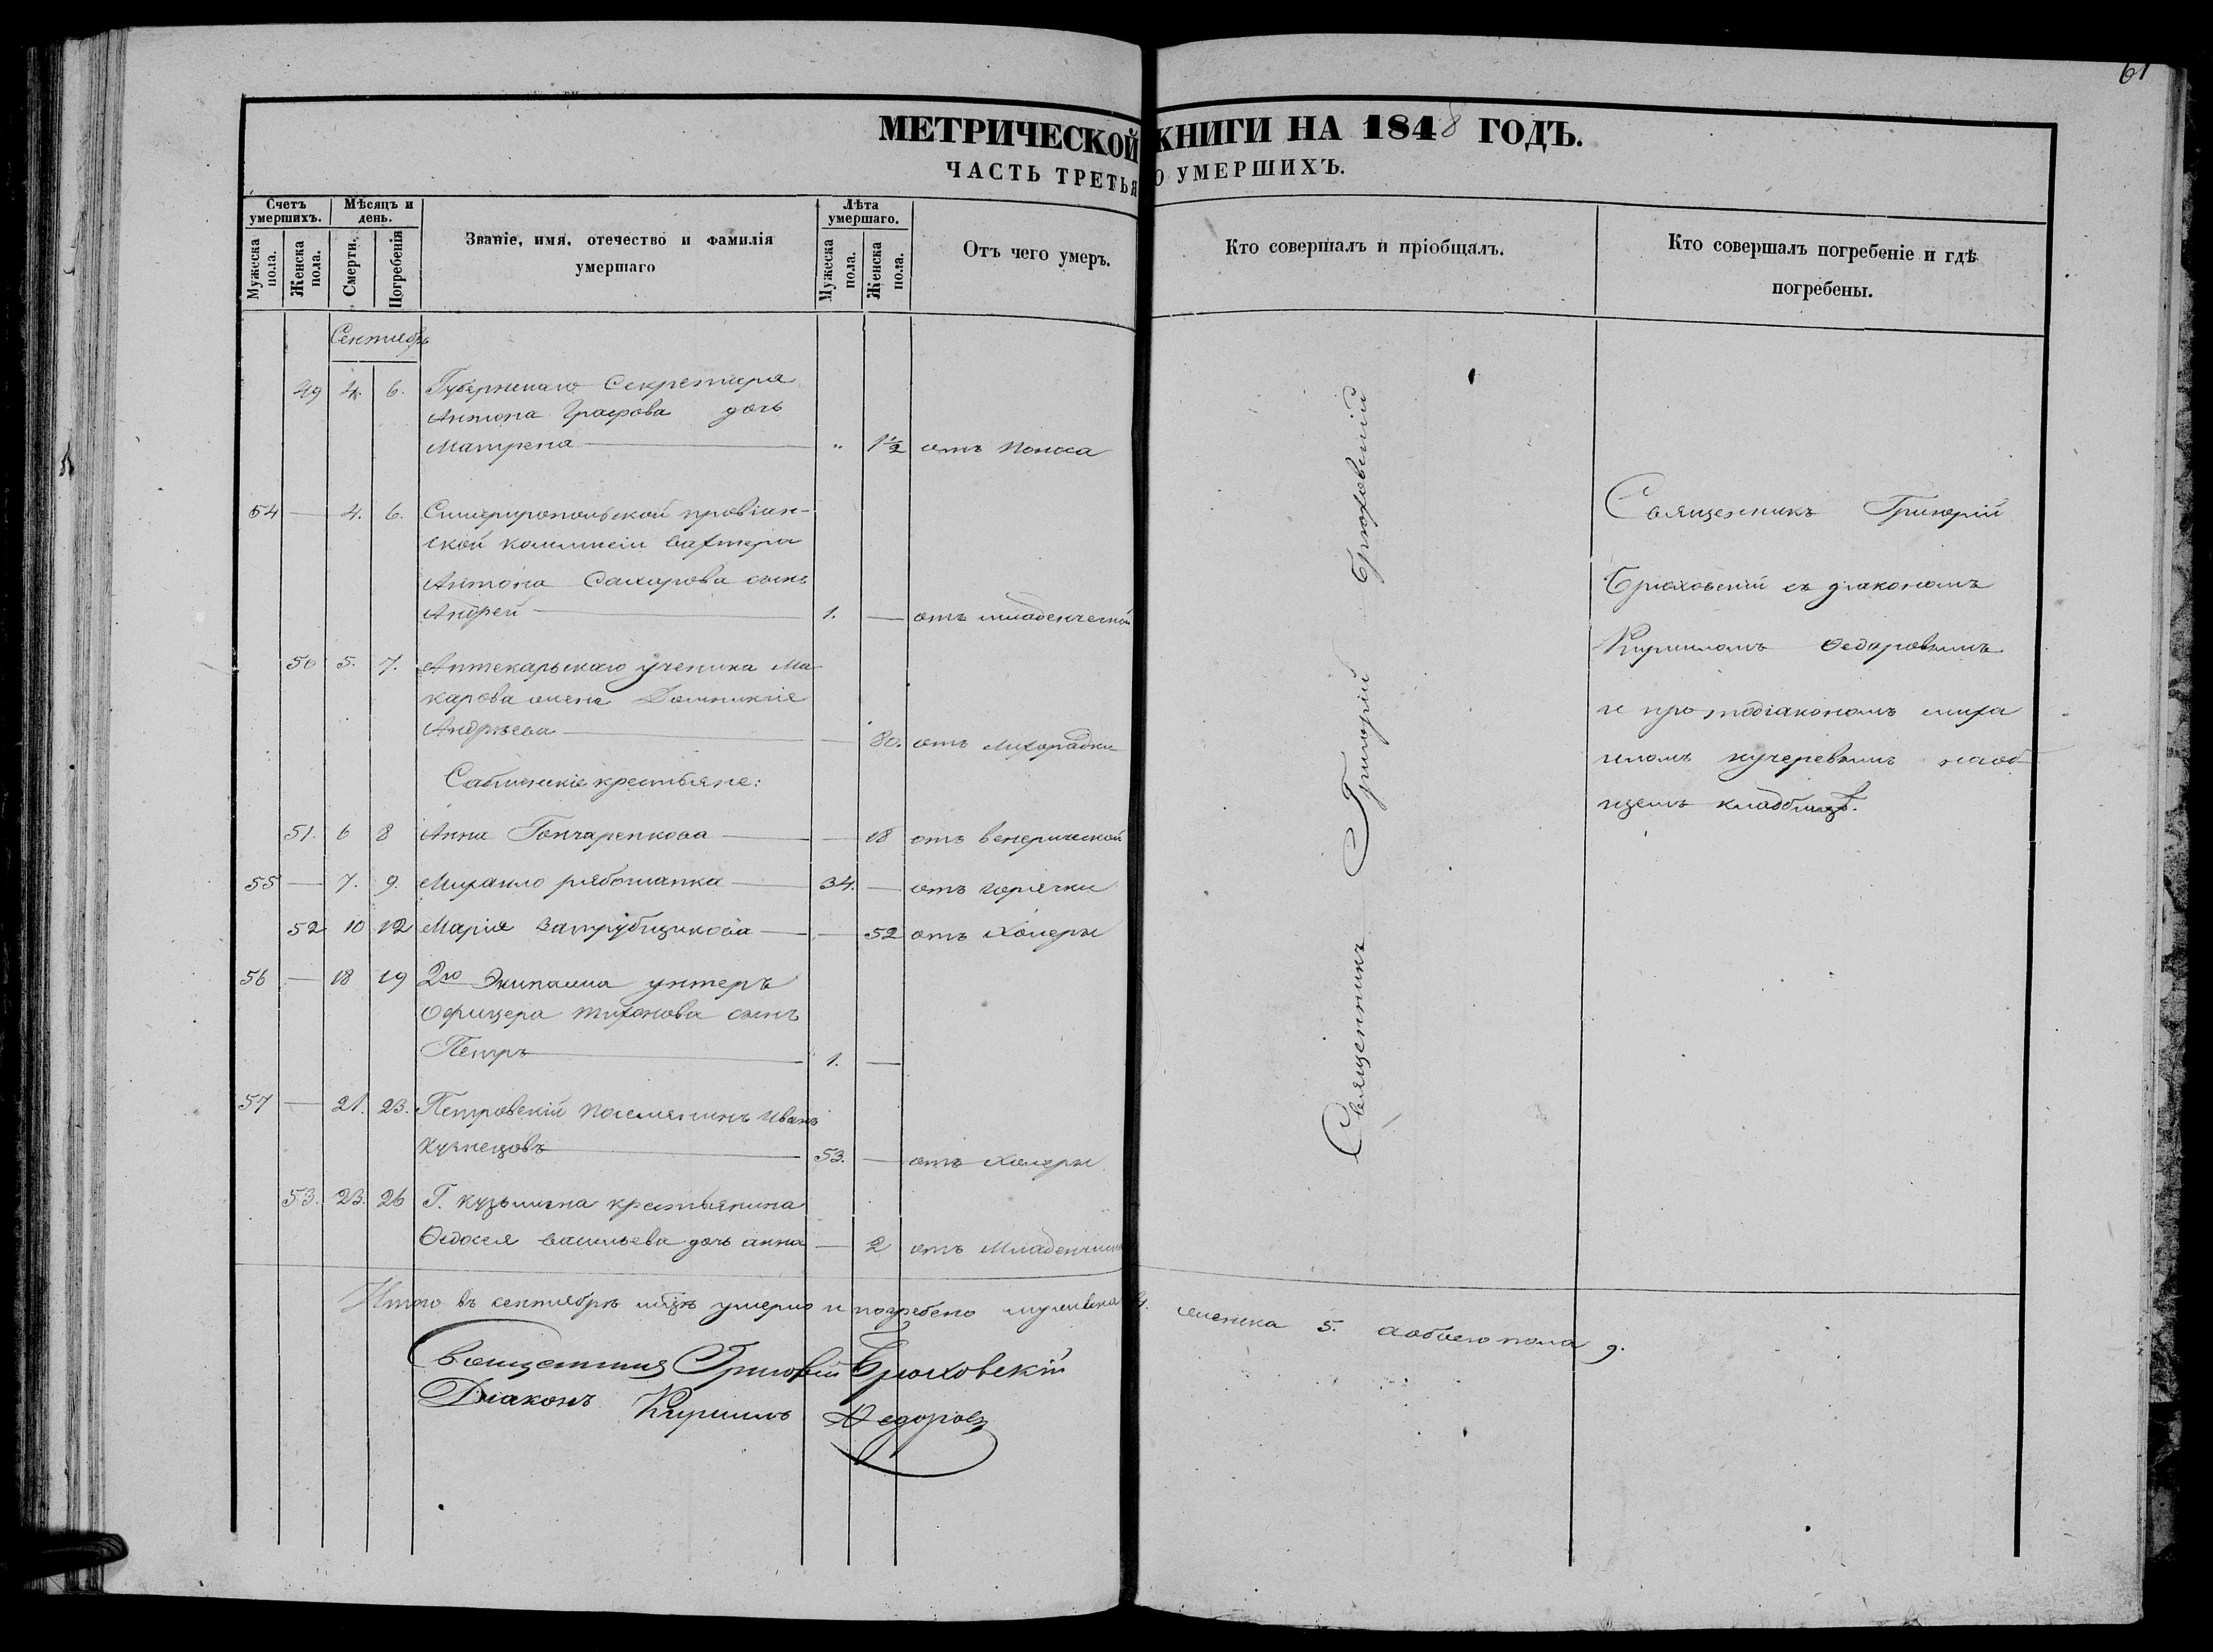 61
МЕТРИЧЕСКОЙ КНИГИ НА 1848 ГОДЪ.
ЧАСТЬ ТРЕТЬЯ О УМЕРШИХЪ.
Счетъ умершихъ.
Мѣсяцъ и день.
Званіе, имя, отечество и фамилія умершаго
Лѣта умершаго.
Отъ чего умеръ.
Кто совершалъ и пріобщалъ.
Кто совершалъ погребеніе и гдѣ погребены.
Мужеска пола.
Женска пола.
Смерти.
Погребенія
Мужеска пола.
Женска пола.
Сентябрь
49 4. 6. Губернскаго Секретаря
Антона Графова дочь
Матрена — " 1½ отъ поноса
54 — 4. 6. Симферопольской провіан-
ской коммисіи вахтера
Антона Сахарова сынъ
Андрей — 1. — отъ младенческой
50 5. 7. Аптекарьскаго ученика Ма
карова жена Домникія
Андрѣева — 80. отъ лихорадки
Саблинскіе крестьяне:
51. 6 8 Анна Гончаренкова — 18 отъ венерической
55 — 7. 9. Михаило рябошапка — 34. — отъ горячки
52 10 12 Марія Затрубщикова — 52 отъ холеры
56 — 18 19 2го Экипажа унтеръ
Офицера тихонова сынъ
Петръ — 1. —
57 — 21. 23. Петровскій поселянинъ Иванъ
кузнецовъ — 53. — отъ холеры
53. 23. 26 Г. кузьмина крестьянина
Ѳедосея васильева дочь анна — 2 отъ Младенческ
Итого въ сентябрѣ мцѣ умерло и погребено мужеска 4. женска 5. а обоего пола 9.
Священникъ Григорій Брюховскій
Діаконъ Кириллъ Ѳедоровъ
Священникъ Григорій Брюховскій
Священникъ Григорій
Брюховскій съ діакономъ
Кирилломъ Ѳедоровымъ
и протодіакономъ миха
иломъ кучеревымъ наоб
щемъ кладбищѣ.